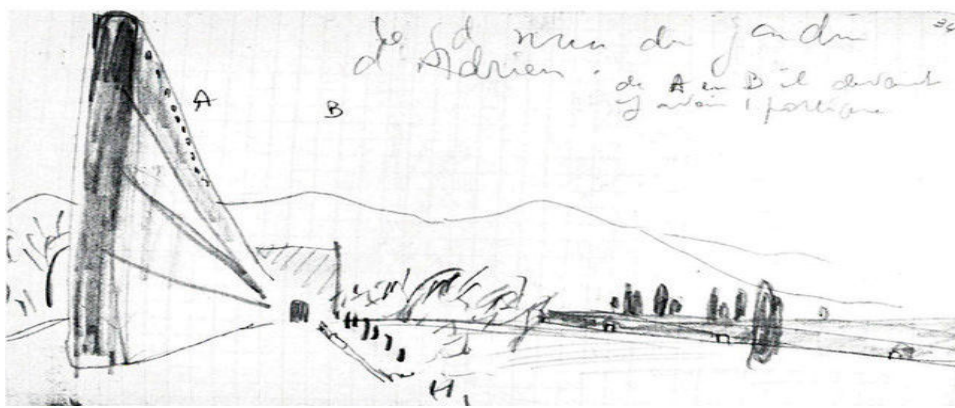 le gd mur du jardin
d'Adrien.
36
de A en B il devait
y avoir 1 portique
A
B
H